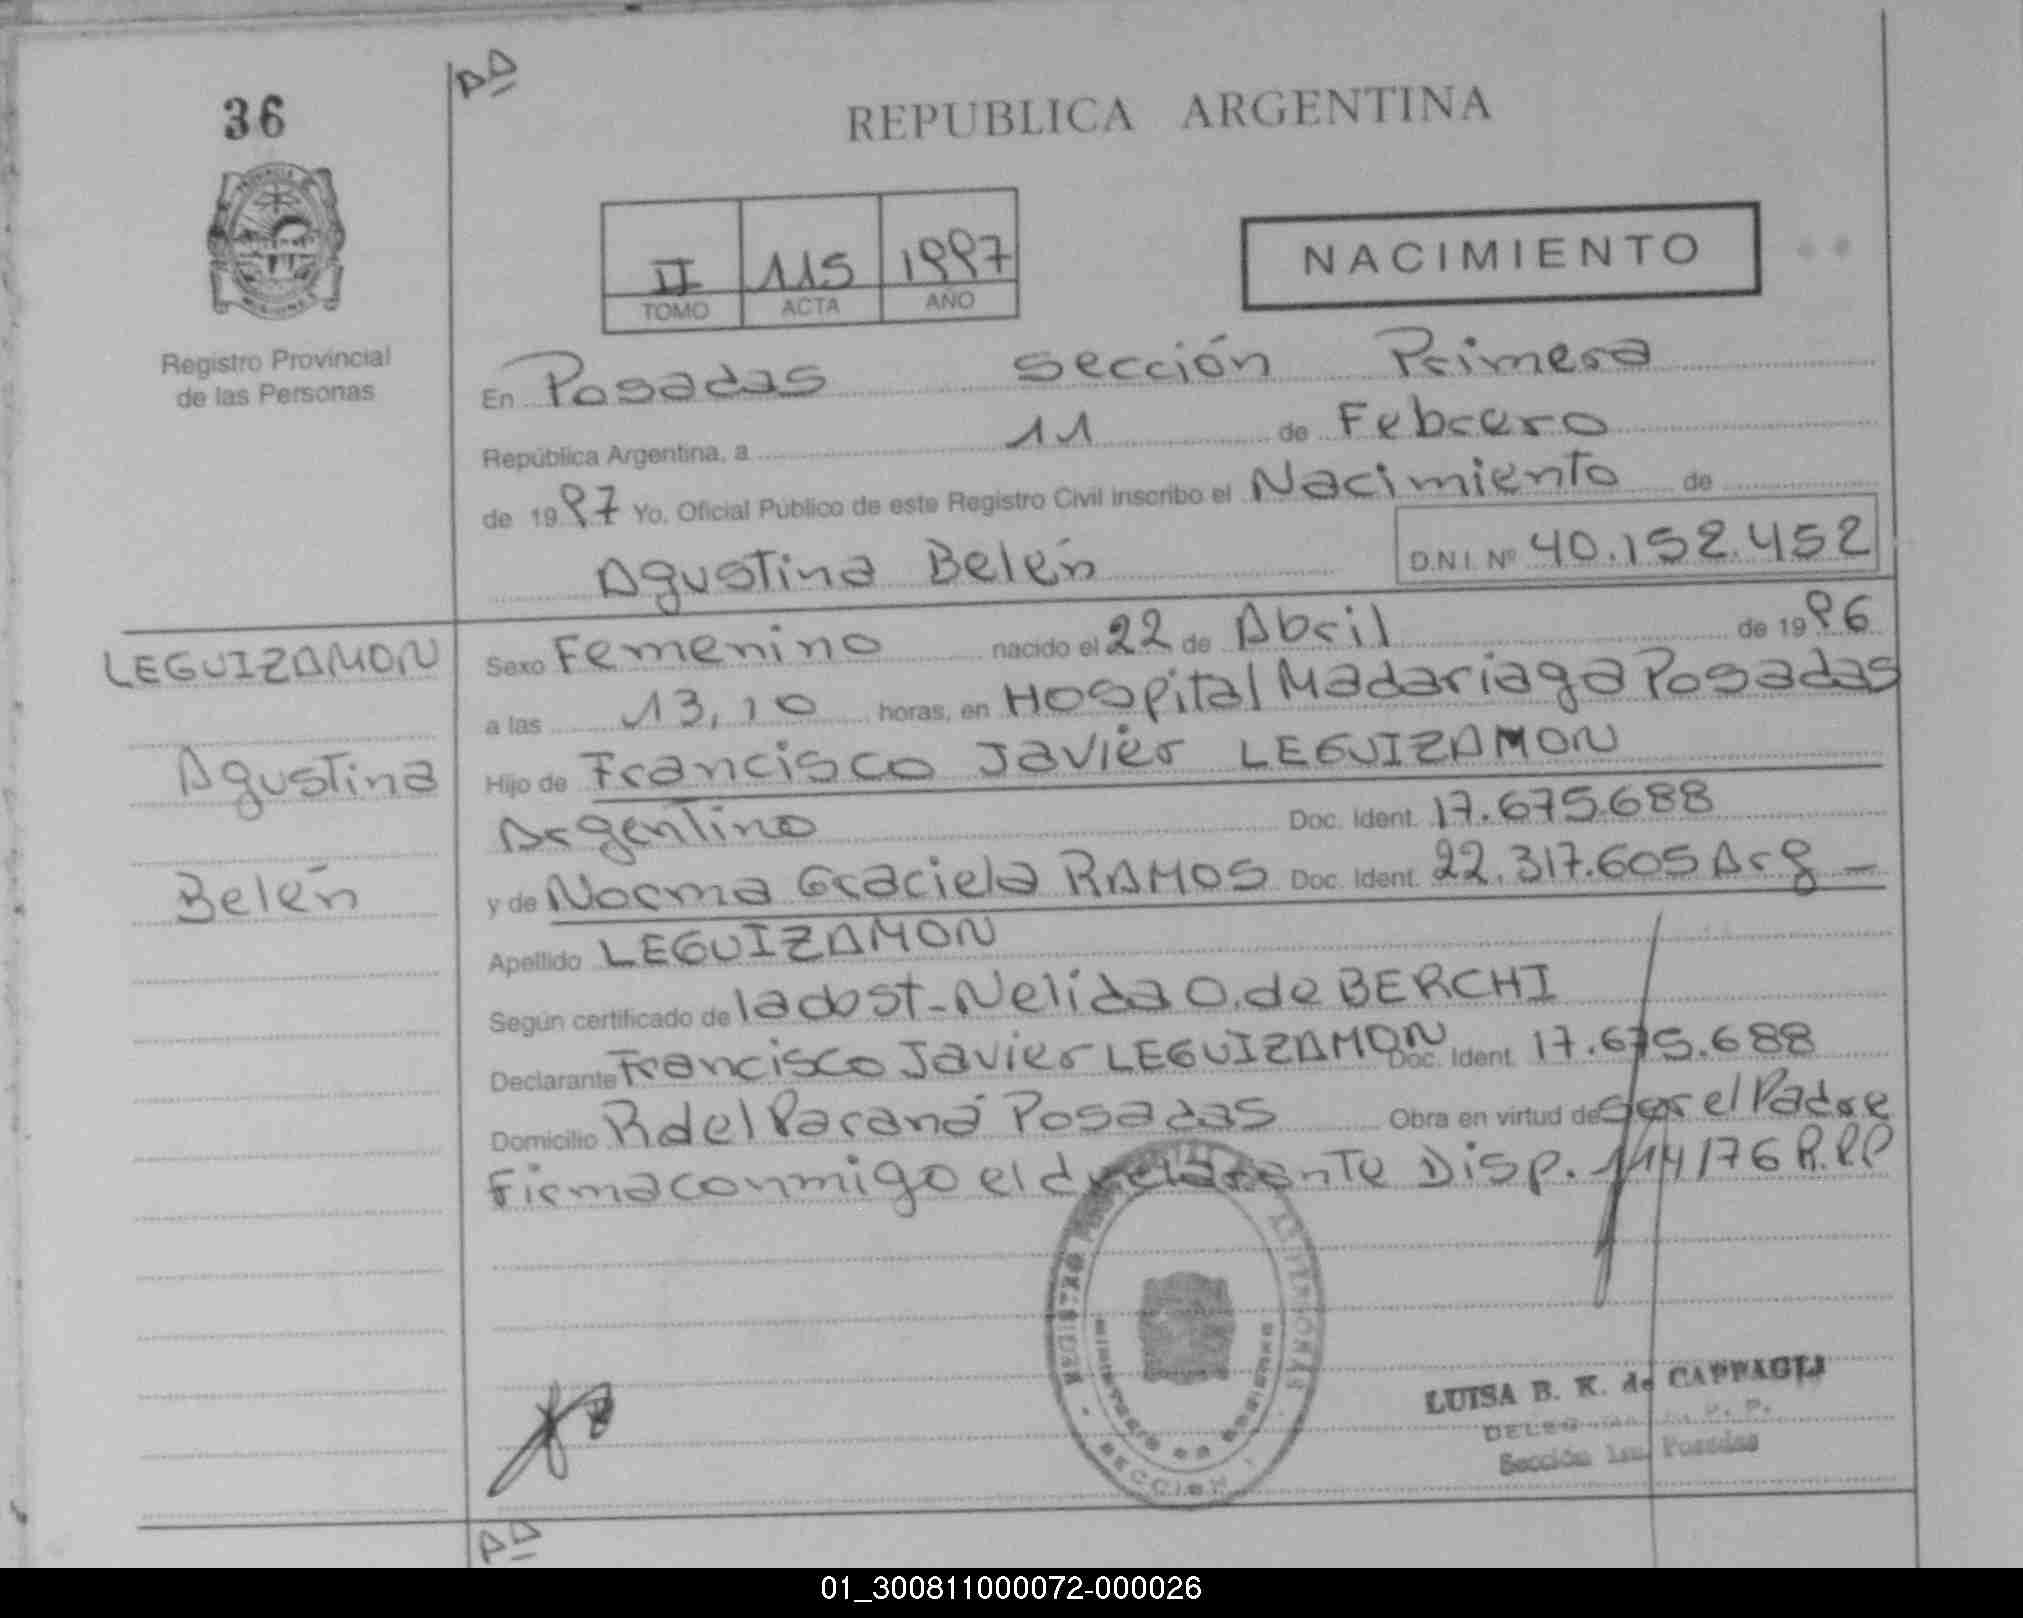 36
AA
REPUBLICA ARGENTINA
II 115 1997
TOMO ACTA AÑO
NACIMIENTO
Registro Provincial
de las Personas
En Posadas sección Primera
República Argentina, a 11 de Febrero
de 1997 Yo, Oficial Público de este Registro Civil inscribo el Nacimiento de
Agustina Belén D.N.I. Nº 40.152.452
LEGUIZAMON
Agustina
Belén
Sexo Femenino nacido el 22 de Abril de 1996
a las 13,10 horas, en Hospital Madariaga Posadas
Hijo de Francisco Javier LEGUIZAMON
Argentino Doc. Ident. 17.675.688
y de Norma Graciela RAMOS Doc. Ident. 22.317.605 Arg -
Apellido LEGUIZAMON
Según certificado de la obst-Nelida O. de BERCHI
Declarante Francisco Javier LEGUIZAMON Doc. Ident. 17.675.688
Domicilio R del Paraná Posadas Obra en virtud de ser el Padre
Firma conmigo el declarante Disp. 114/76 R.PP
LUISA B. K. de
Sección 1ra. Posadas
MINISTERIO DE GOBIERNO
SECCION
AA
01_300811000072-000026